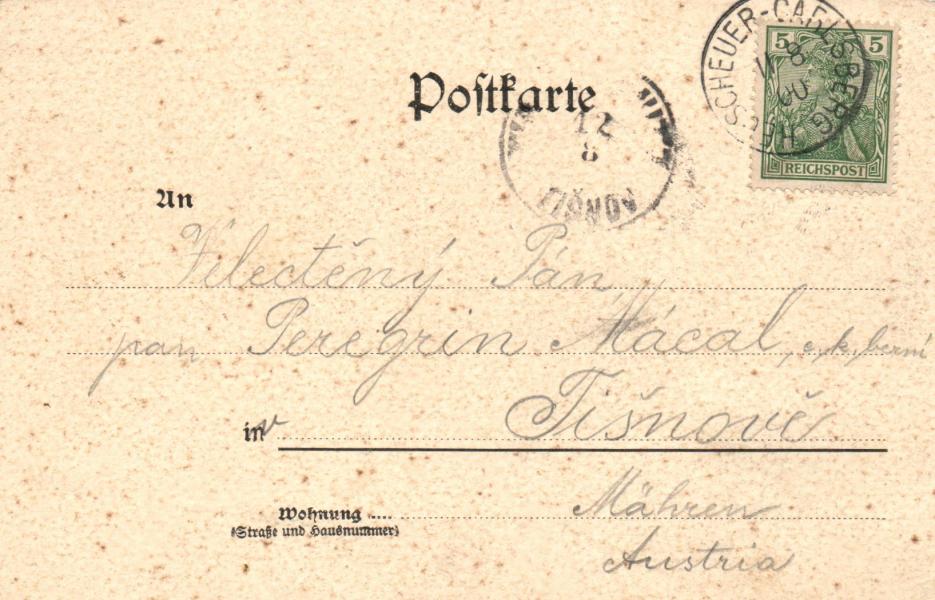 Postkarte
5 5
REICHSPOST
12
8
TIŠNOV
An
Velectěný Pán,
pan Peregrin Mácal, c. k. berní
in v Tišnově
Wohnung ....
(Straße und Hausnummer)
Mähren
Austria